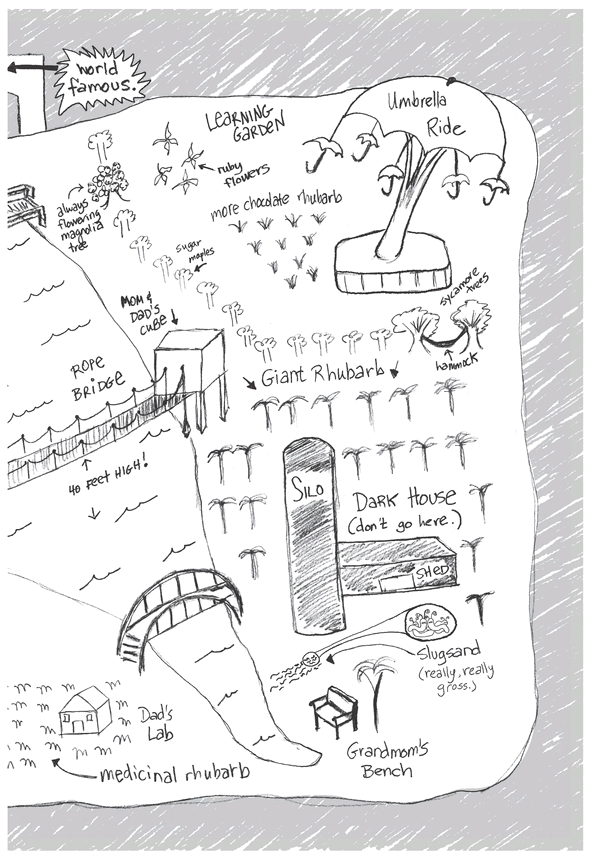 world
famous.
LEARNING
GARDEN
Umbrella
Ride
ruby
flowers
always
flowering
magnolia
tree
more chocolate rhubarb
sugar
maples
sycamore
trees
MOM &
DAD'S
CUBE
hammock
ROPE
BRIDGE
Giant Rhubarb
40 FEET HIGH!
SILO
DARK HOUSE
(don't go here.)
SHED
Slugsand
(really, really
gross.)
Dad's
Lab
Grandmom's
Bench
medicinal rhubarb